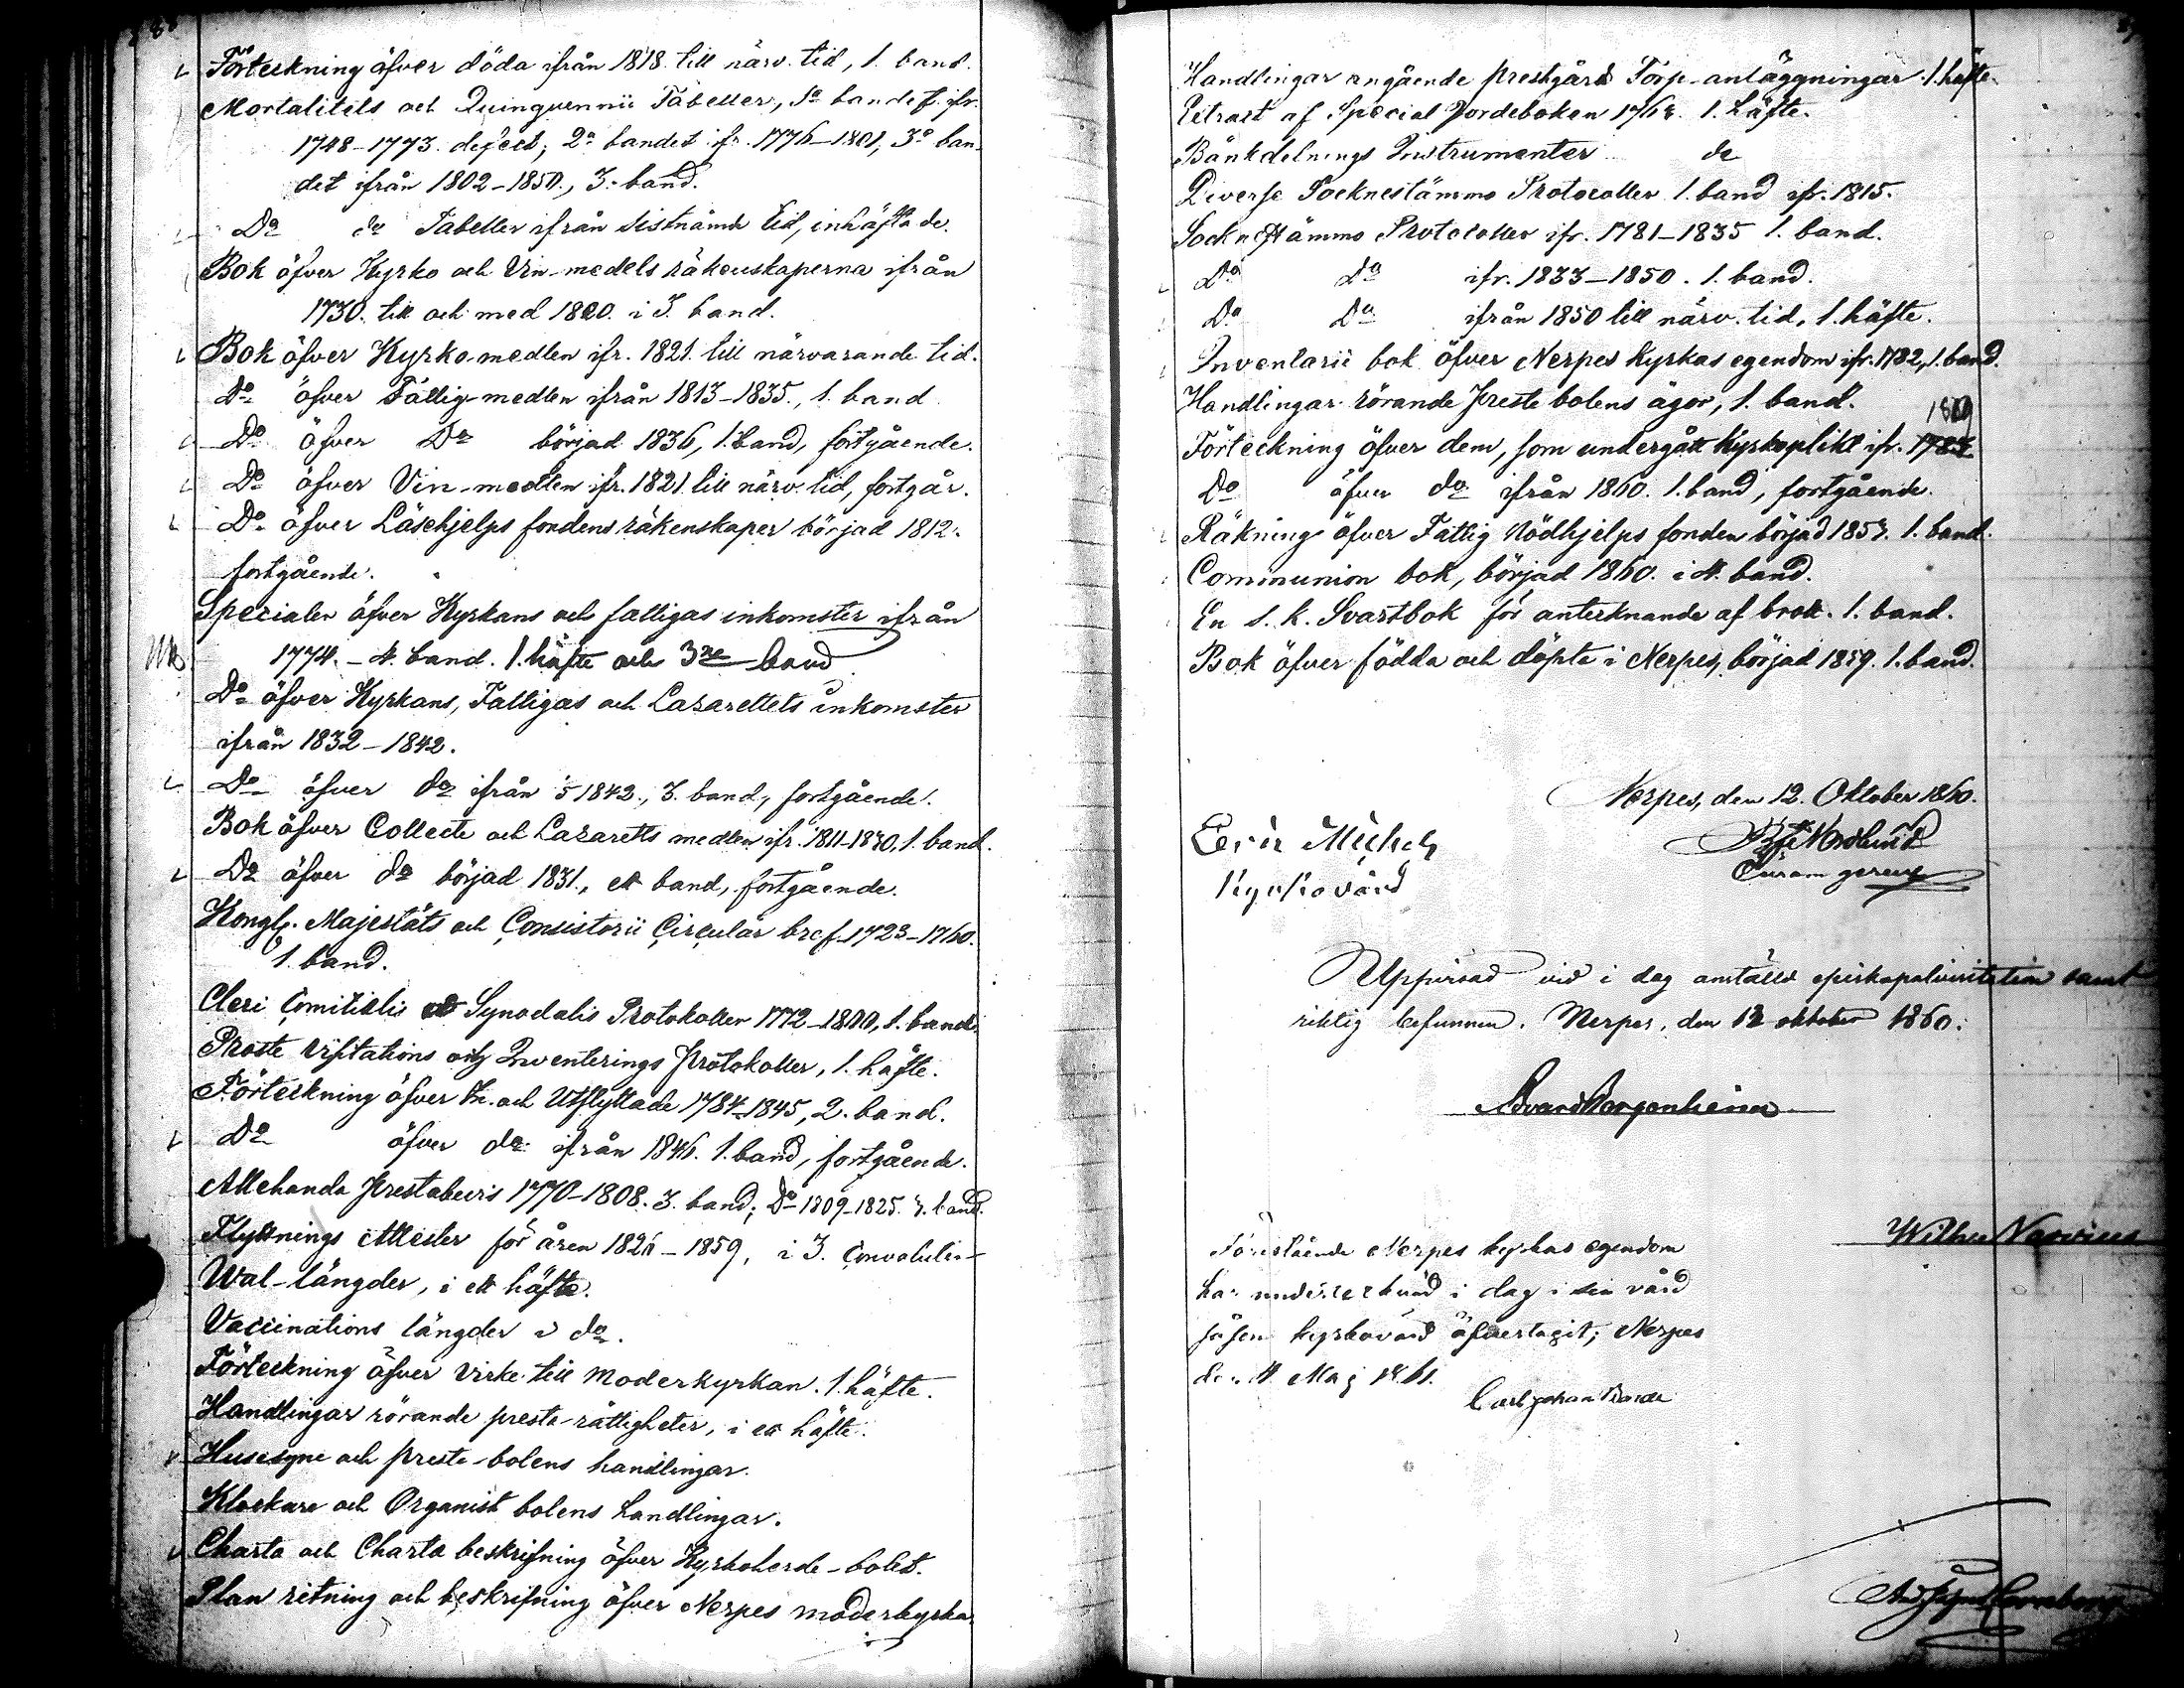 Förteckning öfver döda ifrån 1818. till närv. tid, 1. band.
Mortalitets och Quinquennii Tabeller, 1a bandet ifr.
1748-1773. defect; 2a bandet ifr. 1776-1801, 3e ban-
det ifrån 1802-1850., 3. band.
Do do Tabeller ifrån sistnämde tid, inhäftade.
Bok öfver Kyrko och Vin-medels räkenskaperna ifrån
1730. till och med 1820. i 3. band.
Bok öfver Kyrko-medlen ifr. 1821. till närvarande tid.
Do öfver Fattig-medlen ifrån 1813-1835., 1. band
Do öfver Do började 1836, 1. band, fortgående.
Do öfver Vin-medlen ifr. 1821. till närv. tid, fortgår.
Do öfver Läsehjelps fondens räkenskaper börjad 1812.
fortgående.
Specialer öfver Kyrkans och fattigas inkomster ifrån
1774. - 4. band. 1. häfte och 3ne band
Do öfver Kyrkans, Fattigas och Lazarettets inkomster
ifrån 1832-1842.
Do öfver do ifrån 1842., 3. band, fortgående.
Bok öfver Collecte och Lazaretts medlen ifr. 1811-1830, 1. band.
Do öfver do börjad 1831., ett band, fortgående.
Kongl. Majestäts och Consistorii Circulär bref 1723-1760.
1. band.
Cleri Comitialis et Synodalis Protokoller 1772-1800, 1. band.
Proste Visitations och Inventerings Protokoller, 1. häfte.
Förteckning öfver In- och Utflyttade 1784-1845, 2. band.
Do öfver do ifrån 1846. 1. band, fortgående.
Allehanda Prestabevis 1770-1808. 3. band; Do 1809-1825. 3. band.
Flyttnings Attester för åren 1826-1859, i 3. Convoluter
Wal-längder, i ett häfte.
Vaccinations längder do.
Förteckning öfver virke till moderkyrkan. 1. häfte.
Handlingar rörande presta-rättigheter, i ett häfte.
Husesyne och preste-bolens handlingar.
Klockare och Organist bolens handlingar.
Charta och Charta beskrifning öfver Kyrkoherde-bolet.
Plan ritning och beskrifning öfver Nerpes moderkyrka
Handlingar angående prestgårds Torp-anläggningar 1. häfte.
Extract af Special Jordeboken 1 1. häfte.
Bänkdelnings Instrumenter do
Diverse Socknestämmo Protocoller 1. band ifr. 1815.
Socknestämmo Protocoller ifr. 1781-1835 1. band.
Do do ifr. 1833-1850. 1. band.
Do do ifrån 1850 till närv. tid, 1. häfte.
Inventarii bok öfver Nerpes Kyrkas egendom ifr. 1782, 1. band.
Handlingar rörande Preste bolens ägor, 1. band.
Förteckning öfver dem, som undergått Kyrkoplikt ifr.
Do öfver do ifrån 1860. 1. band, fortgående.
Räkning öfver Fattig Nödhjelps fonden börjad 1. band.
Communion bok, börjad 1860. i 4. band.
En s. k. Svartbok för antecknande af brott. 1. band.
Bok öfver födda och döpte i Nerpes, börjad 1859. 1. band.
Nerpes, den 12. Oktober 1860.
Nordlund
Kyrkovärd
Curam gerens
Uppvisad vid i dag anställd episkopalvisitation samt
riktig befunnen. Nerpes, den 12 oktober 1860.
Edvard Bergenheim
Förestående Nerpes kyrkas egendom
har undertecknad i dag i sin vård
såsom kyrkovärd öfvertagit; Nerpes
den 4 Maj 1861.
Carl Johan